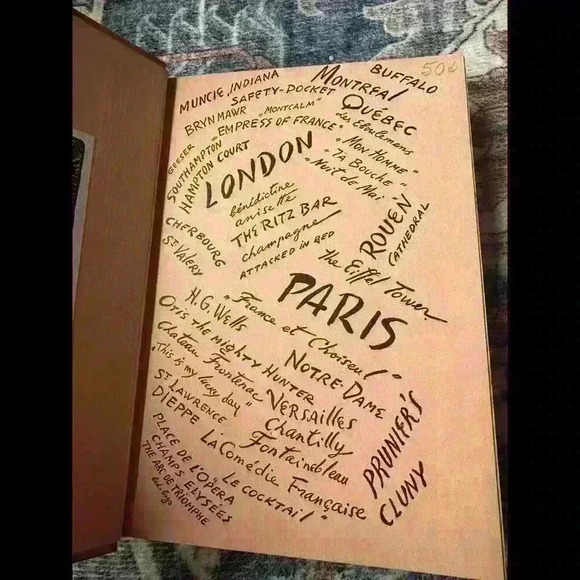 BUFFALO
50¢
MONTREAL
MUNCIE, INDIANA
SAFETY-POCKET
QUÉBEC
BRYN MAWR
„MONTCALM"
Les Eboulemens
„EMPRESS OF FRANCE"
„MON HOMME"
GEESER
SOUTHAMPTON
HAMPTON COURT
LONDON
„TA BOUCHE"
„Nuit de Mai"
bénédictine
anisette
THE RITZ BAR
champagne
ATTACKED IN RED
ROUEN
CATHEDRAL
CHERBOURG
ST VALERY
the Eiffel Tower
PARIS
H.G. Wells
„France et Choiseul"
OTIS THE MIGHTY HUNTER
NOTRE-DAME
Chateau Frontenac
VERSAILLES
„This is my lucky day"
Chantilly
ST LAWRENCE
Fontainebleau
DIEPPE
PRUNIER'S
La Comédie Française
CLUNY
PLACE DE L'OPÉRA
„LE COCKTAIL"
CHAMPS ELYSÉES
THE ARC DE TRIOMPHE